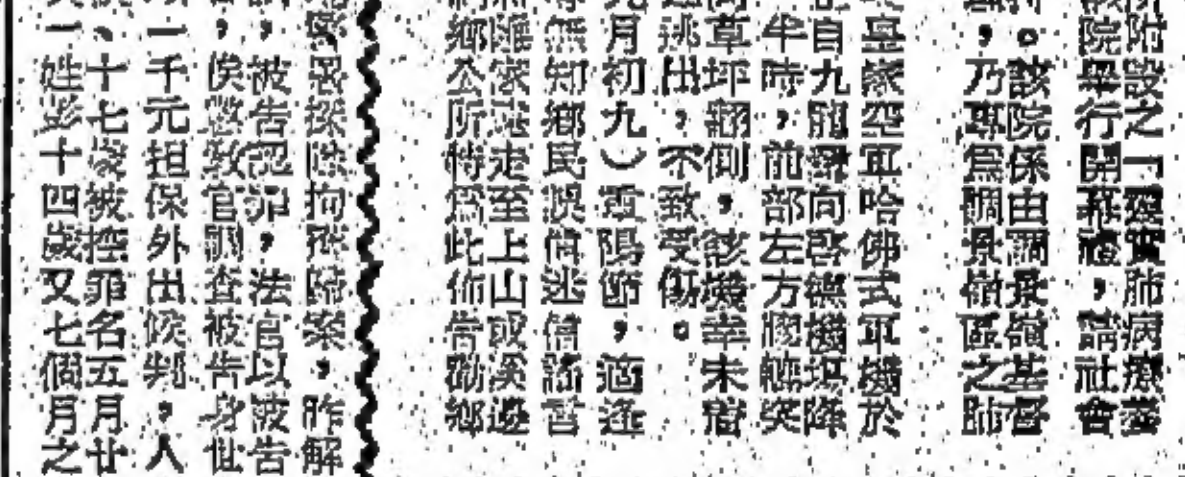 所附設之「靈實肺病療養
該院舉行開幕禮，請社會
。該院係由調景嶺基督
，乃專為調景嶺區之肺
皇家空軍哈佛式軍機於
自九龍灣向啓德機場降
半時，前部左方膠轆突
草坪翻倒，該機幸未着
逃出，不致受傷。
九月初九）重陽節，適逢
無知鄉民誤信迷信謠言
離家逃走至上山或溪邊
鄉公所特為此佈告勸鄉
探員拘獲歸案，昨解
，被告認罪，法官以被告
，俟感教官調查被告身世
一千元担保外出候判，人
、十七歲被控罪名五月廿
一姓彭十四歲又七個月之